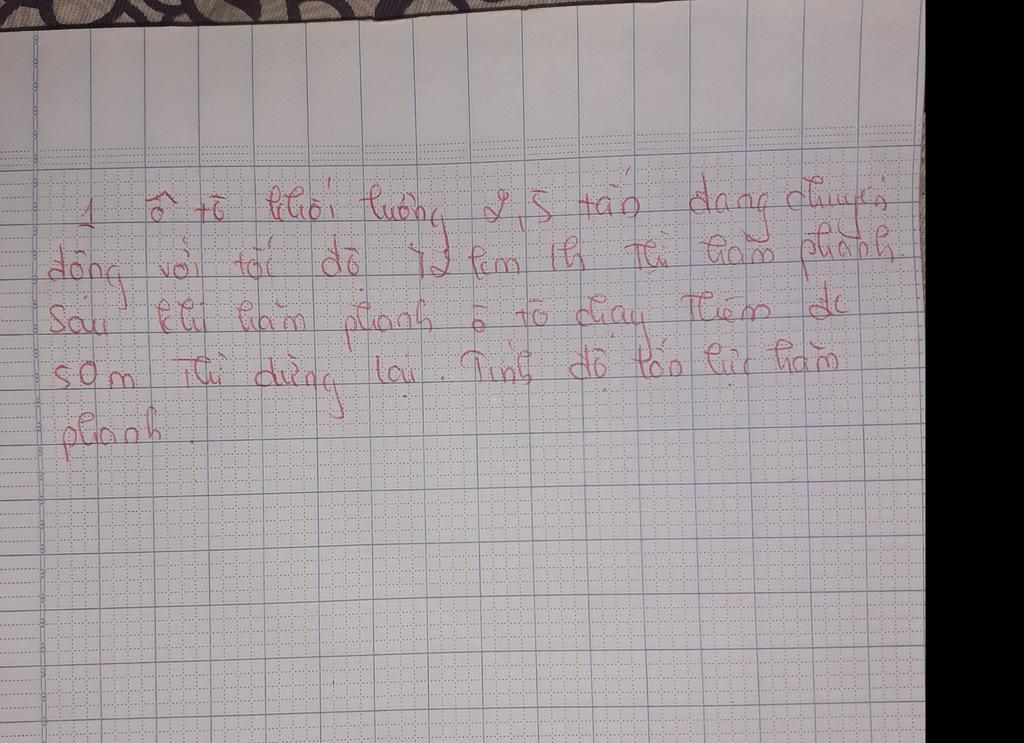 1 ô tô khối lượng 2,5 tấn đang chuyển
động với tốc độ 72 km/h thì hãm phanh
sau khi hãm phanh ô tô chạy thêm đc
50m thì dừng lại. Tính độ lớn lực hãm
phanh